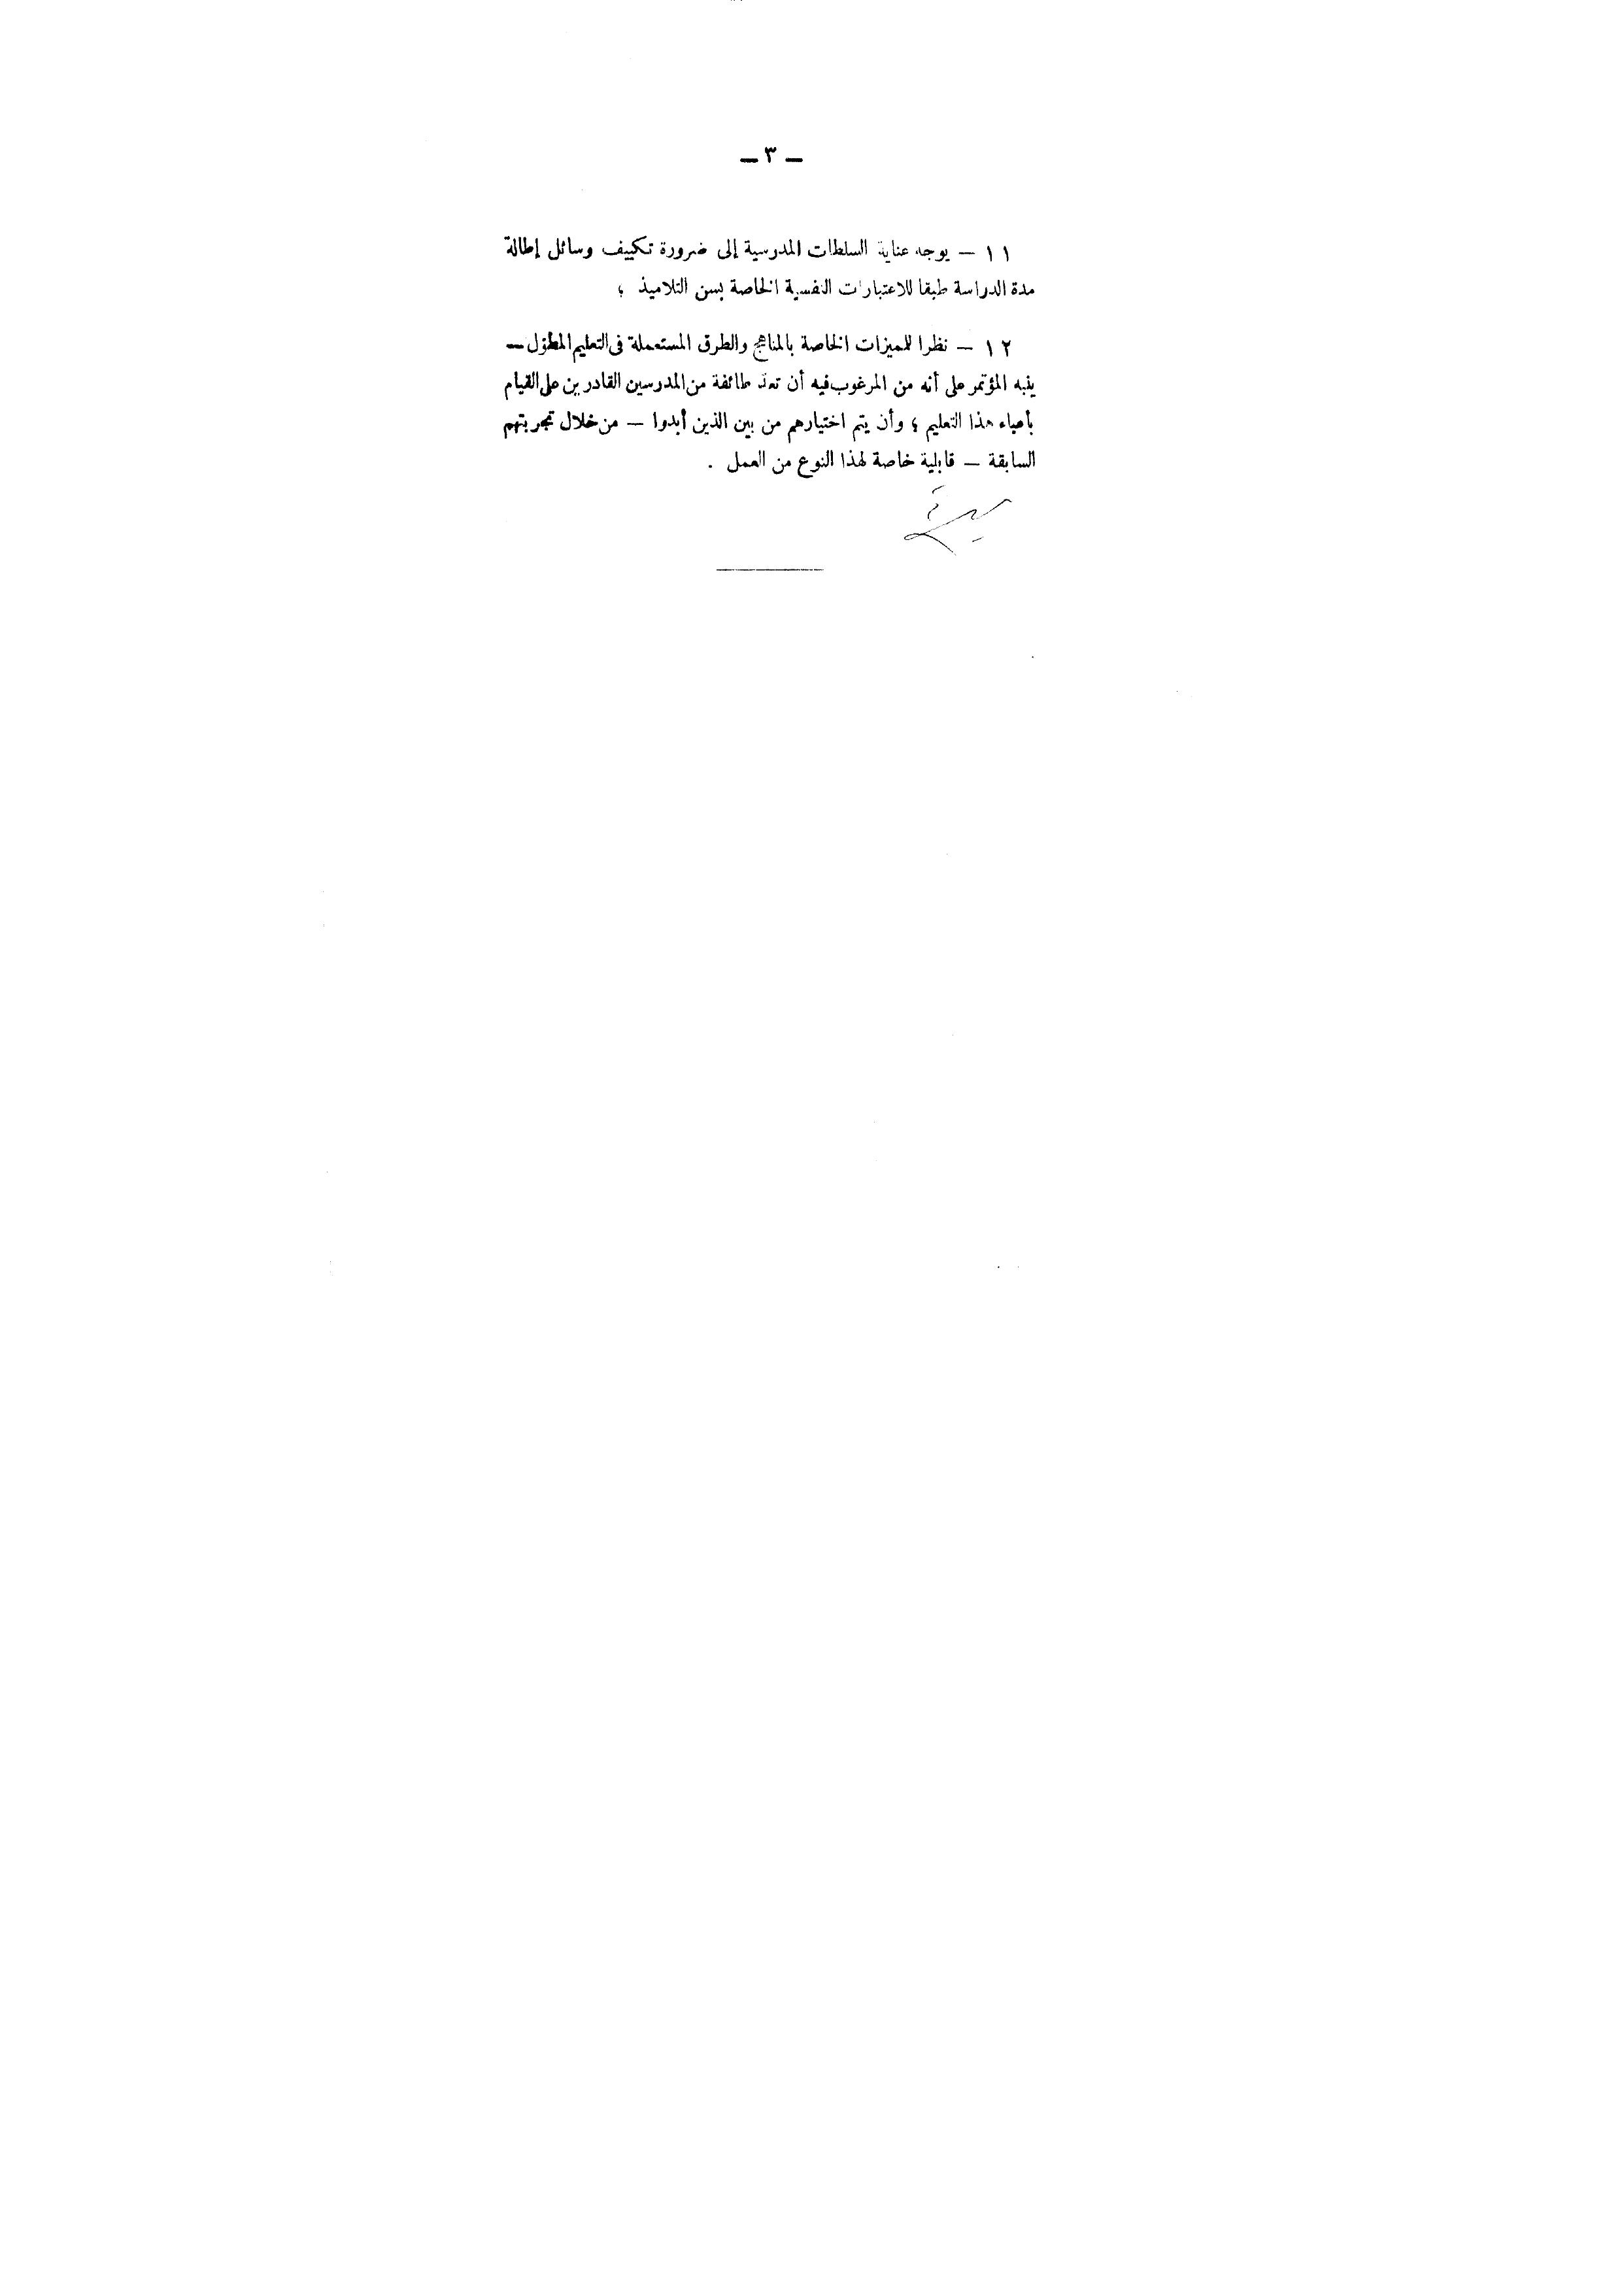 — ٣ —
١١ — يوجه عناية السلطات المدرسية إلى ضرورة تكييف وسائل إطالة
مدة الدراسة طبقا للاعتبارات النفسية الخاصة بسن التلاميذ ؛
١٢ — نظرا للميزات الخاصة بالمناهج والطرق المستعملة فى التعليم المطوّل —
ينبه المؤتمر على أنه من المرغوب فيه أن تعدّ طائفة من المدرسين القادرين على القيام
بأعباء هذا التعليم ؛ وأن يتم اختيارهم من بين الذين أبدوا — من خلال تجربتهم
السابقة — قابلية خاصة لهذا النوع من العمل .